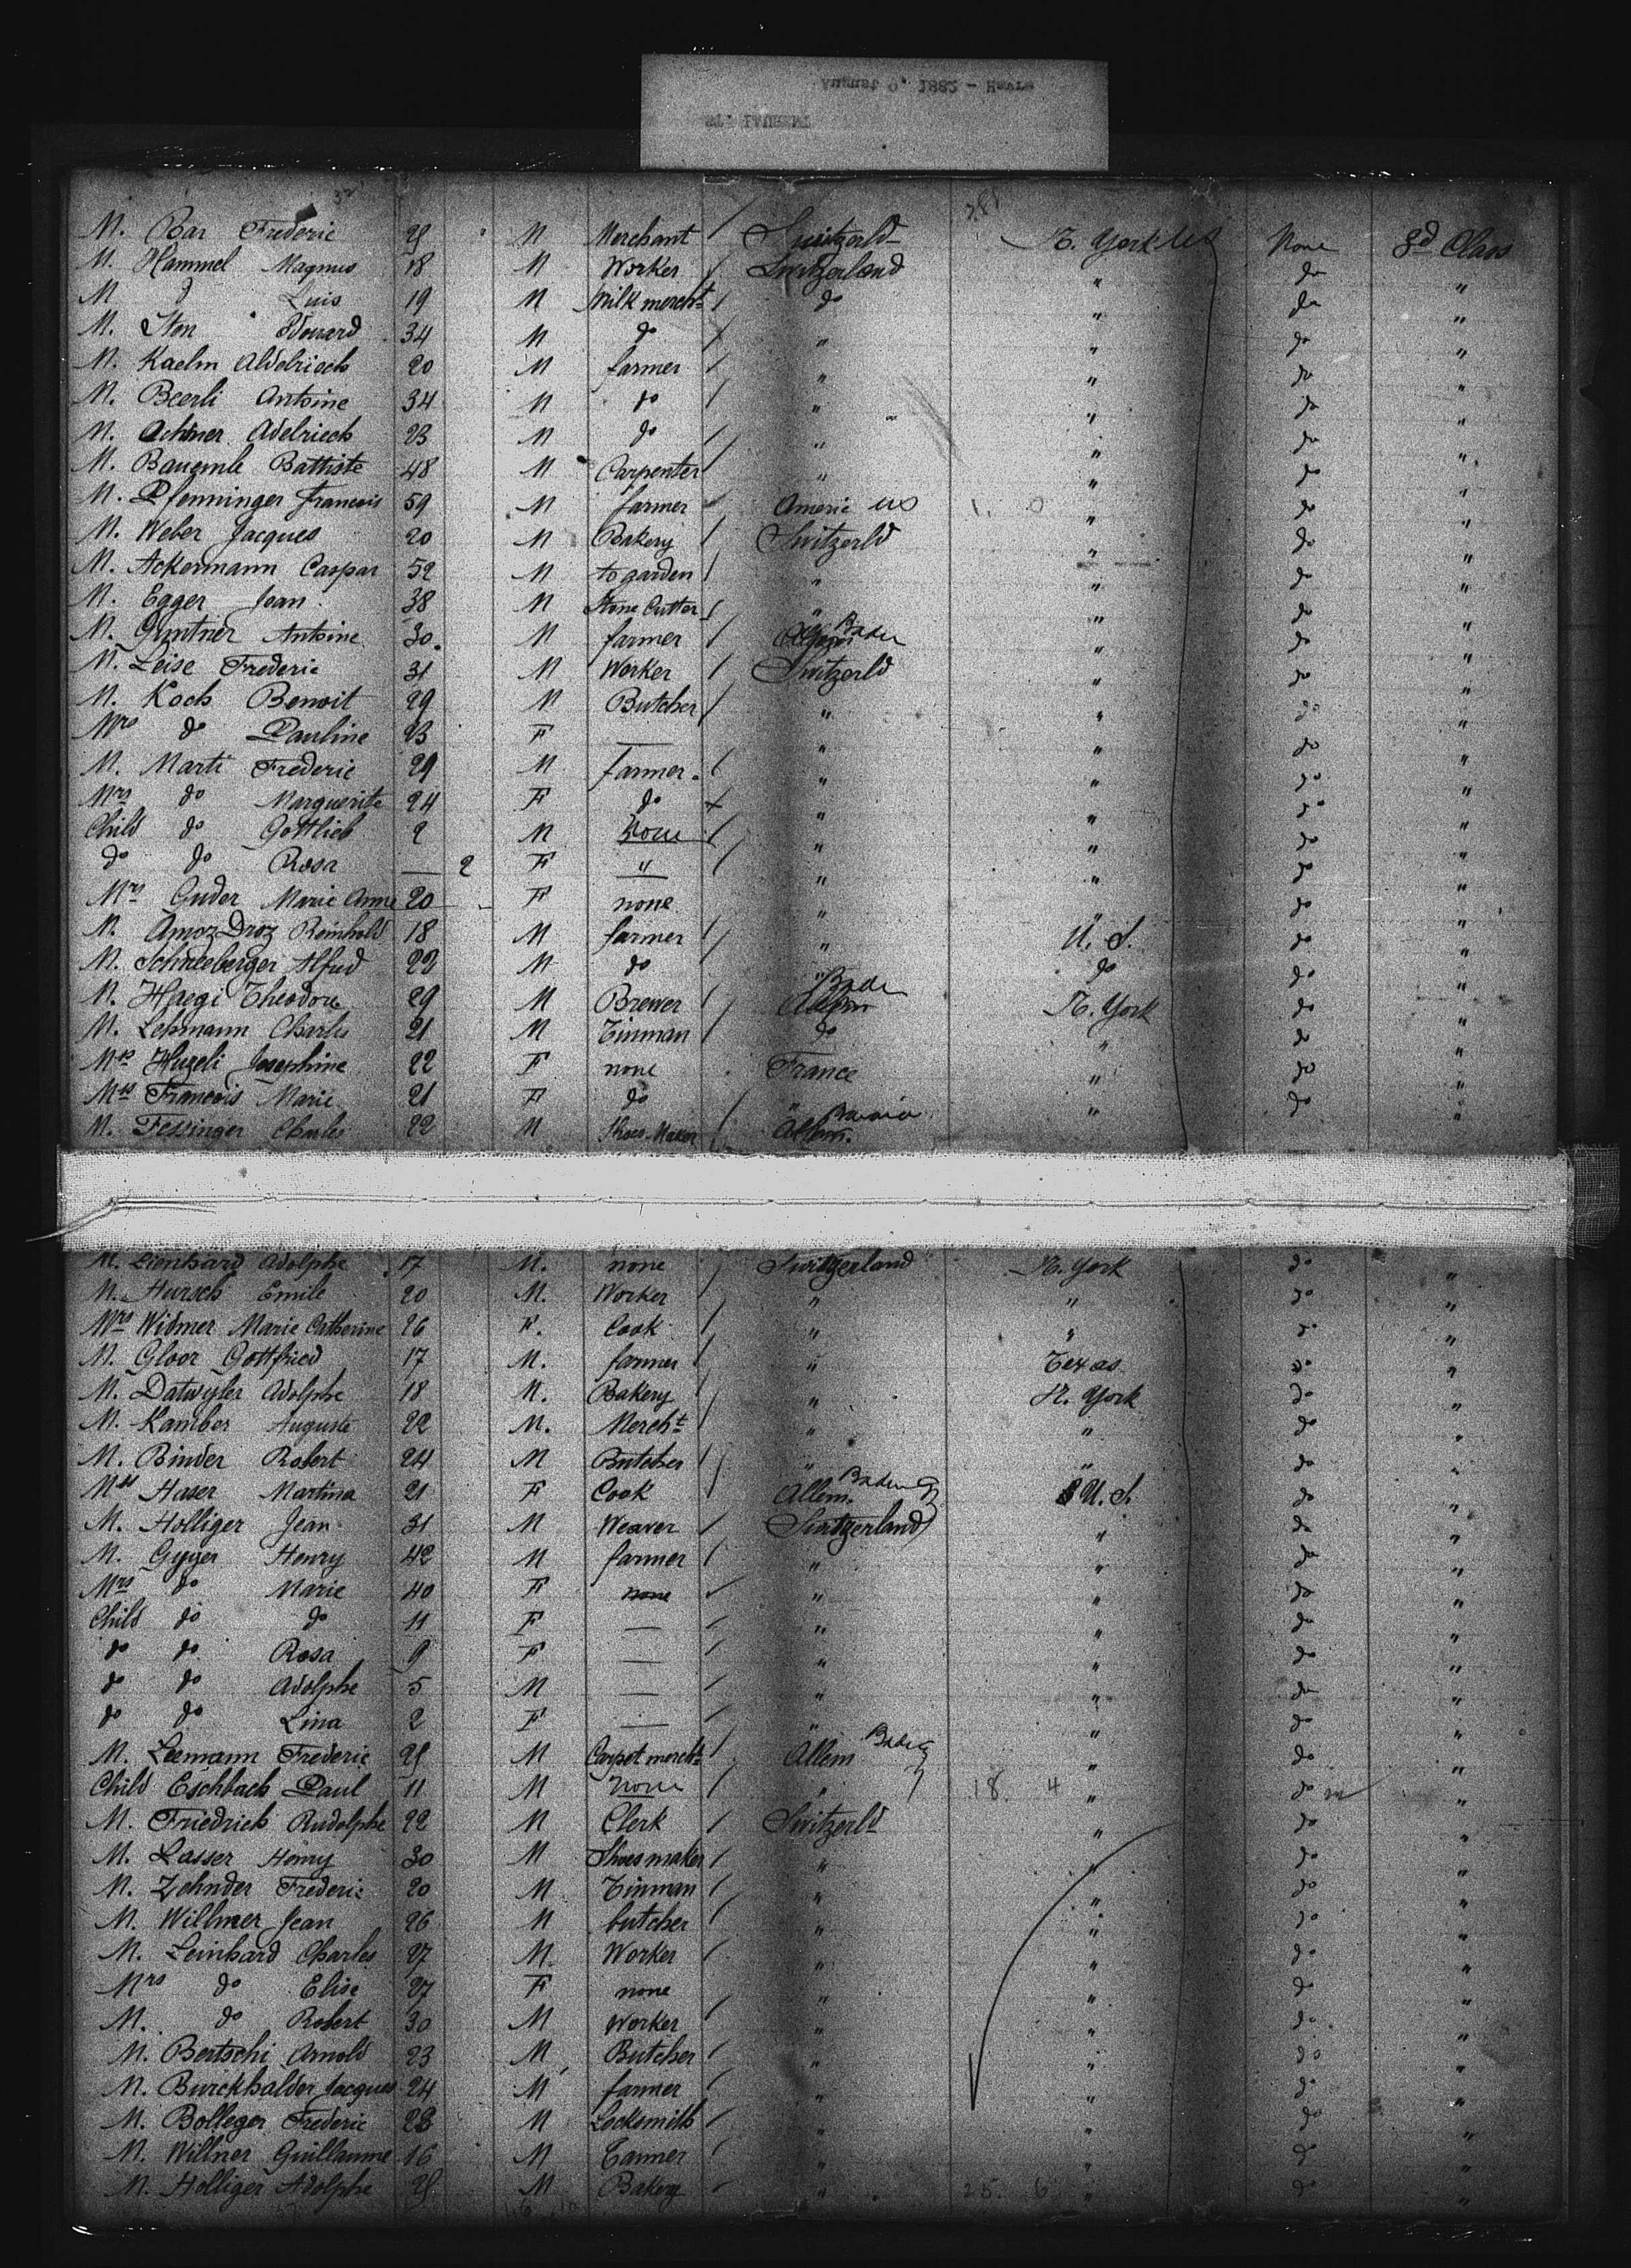 August 6, 1882 - Havre
ST. LAURENT
M. Bär Frederic 25 M Merchant Switzerld N. York US None 3d Class
M. Hammel Magnus 18 M Worker Switzerland " do "
M do Luis 19 M Milk mercht do " do "
M. Edouard 34 M do " " do "
M. Kaelin Aldelriech 20 M farmer " " do "
M. Beerli Antoine 34 M do " " do "
M. Adelriech 23 M do " " do "
M. Battiste 48 M Carpenter " " do "
M. Pfenninger Francois 59 M farmer Americ US 1. 0 " do "
M. Weber Jacques 20 M Bakery Switzerld " do "
M. Ackermann Caspar 52 M to garden " " do "
M. Egger Jean 38 M Stone Cutter " " do "
M. Guntner Antoine 30 M farmer Baden " do "
M. Leise Frederic 31 M Worker Switzerld " do "
M. Koch Benoit 29 M Butcher " " do "
Mrs do Pauline 23 F — " " do "
M. Marti Frederic 29 M farmer " " do "
Mrs do Marguerite 24 F do " " do "
Child do Gottlieb 2 M None " " do "
do do Rosa — 2 F " " " do "
Mrs Guder Marie Anne 20 F none " " do "
M. Amoz Droz Reinhold 18 M farmer " U. S. do "
M. Schneeberger Alfred 22 M do " do do "
M. Haegi Theodore 29 M Brewer Allem Baden N. York do "
M. Lehmann Charles 21 M Tinman do " do "
Mss Huzeli Josephine 22 F none France " do "
Mss Francois Marie 21 F do " " do "
M. Fessinger Charles 22 M Shoes Maker Allem. Bavaria
M. Lienhard Adolphe 17 M. none Switzerland N. York do "
M. Hursch Emile 20 M. Worker " " do "
Mrs Widmer Marie Catherine 26 F. Cook " " do "
M. Gloor Gottfried 17 M. farmer " Texas do "
M. Datwyler Adolphe 18 M. Bakery " N. York do "
M. Kamber Auguste 22 M. Mercht " " do "
M. Binder Robert 24 M Butcher " " do "
Mss Haser Martina 21 F Cook Allem. Baden U. S. do "
M. Holliger Jean 31 M Weaver Switzerland " do "
M. Gyger Henry 42 M farmer " " do "
Mrs do Marie 40 F none " " do "
Child do do 11 F — " " do "
do do Rosa 9 F — " " do "
do do Adolphe 5 M — " " do "
do do Lina 2 F — " " do "
M. Leemann Frederic 25 M Carpet mercht Allem Baden " do "
Child Eschbach Paul 11 M none " 18. 4 " do "
M. Friedrich Rudolphe 22 M Clerk Switzerld " do "
M. Lasser Henry 30 M Shoes maker " " do "
M. Zehnder Frederic 20 M Tinman " " do "
M. Willmer Jean 26 M butcher " " do "
M. Leinhard Charles 27 M. Worker " " do "
Mrs do Elise 27 F none " " do "
M. do Robert 30 M Worker " " do "
M. Bertschi Arnold 23 M Butcher " " do "
M. Burckhalder Jacques 24 M farmer " " do "
M. Bolleger Frederic 28 M Locksmith " " do "
M. Willner Guillaume 16 M Tanner " " do "
M. Holliger Adolphe 25 M Bakery " 25. 6 " do "